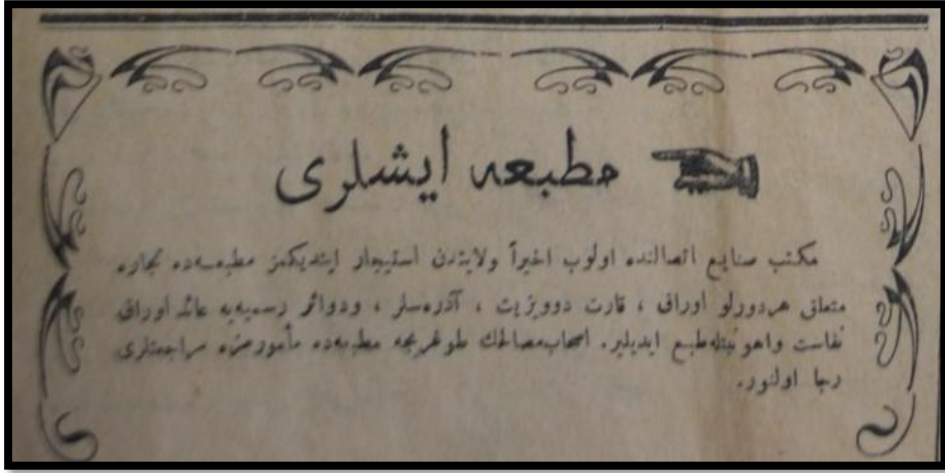 مطبعه ایشلری
مكتب صنایع اتصالنده اولوب اخیراً ولایتدن استیجار ایتدیكمز مطبعه‌ده تجاره
متعلق هردورلو اوراق ، قارت دوویزیت ، آدره‌سلر ، ودوائر رسمیه‌یه عائد اوراق
نفاست واهونیتله طبع ایدیلیر. اصحاب مصالحك طوغریجه مطبعه‌ده مأمورمزه مراجعتلری
رجا اولنور.